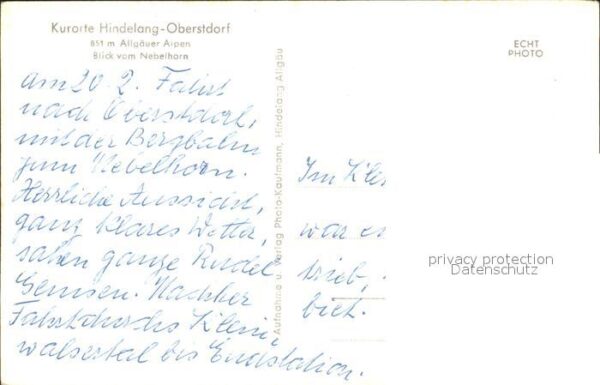 Kurorte Hindelang-Oberstdorf
851 m Allgäuer Alpen
Blick vom Nebelhorn
ECHT
PHOTO
am 20. 2. Fahrt
nach Oberstdorf,
mit der Bergbahn
zum Nebelhorn.
Herrliche Aussicht,
ganz klares Wetter,
sahen ganze Rudel
Gemsen. Nachher
Fahrt durchs Klein-
walsertal bis Endstation.
Aufnahme u. Verlag Photo-Kaufmann, Hindelang Allgäu
Im Klei
war es
trieb,
biet.
privacy protection
Datenschutz